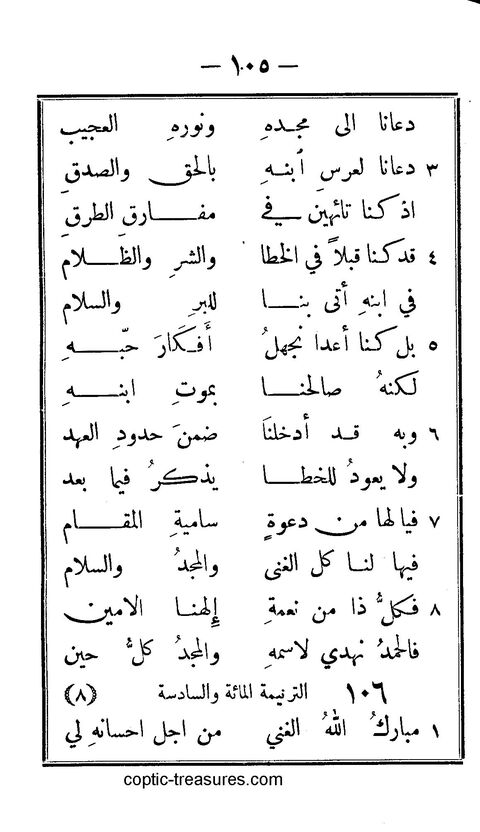 — ١٠٥ —
دعانا الى مجدهِ ونورهِ العجيب
٣ دعانا لعرسِ ٱبنهِ بالحق والصدقِ
اذ كنا تائهين في مفارقِ الطرقِ
٤ قد كنا قبلاً في الخطا والشرِ والظلام
في ابنهِ أتى بنا للبرِ والسلام
٥ بل كنا أعدا نجهلُ أفكارَ حبّهِ
لكنهُ صالحنا بموتِ ابنهِ
٦ وبه قد أدخلنا ضمنَ حدودِ العهد
ولا يعودُ للخطا يذكرُ فيما بعد
٧ فيا لها من دعوةٍ ساميةِ المقام
فيها لنا كل الغنى والمجدُ والسلام
٨ فكلُّ ذا من نعمةِ إلهنا الامين
فالحمدُ نهدي لاسمهِ والمجدُ كلَّ حين
١٠٦ الترنيمة المائة والسادسة (٨)
١ مباركُ اللهُ الغني من اجل احسانهِ لي
coptic-treasures.com